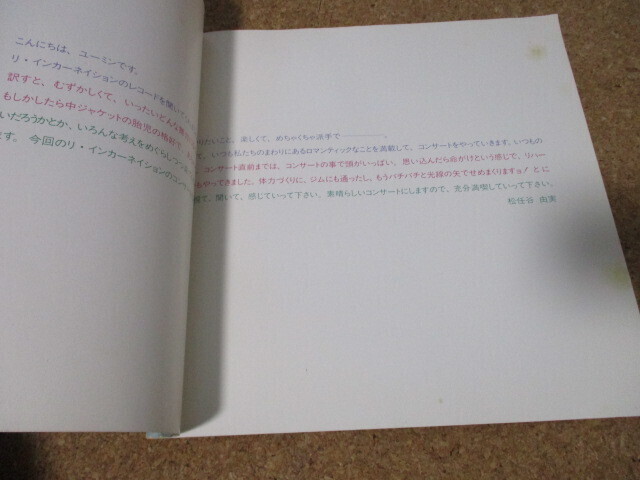 こんにちは、ユーミンです。
リ・インカーネイションのレコードを聞いて
訳すと、むずかしくて、いったいどんな
もしかしたら中ジャケットの胎児の格好で、
いだろうかとか、いろんな考えをめぐらし
ます。今回のリ・インカーネイションのコン
たいこと。楽しくて、めちゃくちゃ派手で————。
て、いつも私たちのまわりにあるロマンティックなことを満載して、コンサートをやっていきます。いつもの
コンサート直前までは、コンサートの事で頭がいっぱい。思い込んだら命がけという感じで、リハー
もやってきました。体力づくりに、ジムにも通ったし。もうバチバチと光線の矢でせめまくりますョ！とに
聞いて、感じていって下さい。素晴らしいコンサートにしますので、充分満喫していって下さい。
松任谷 由実